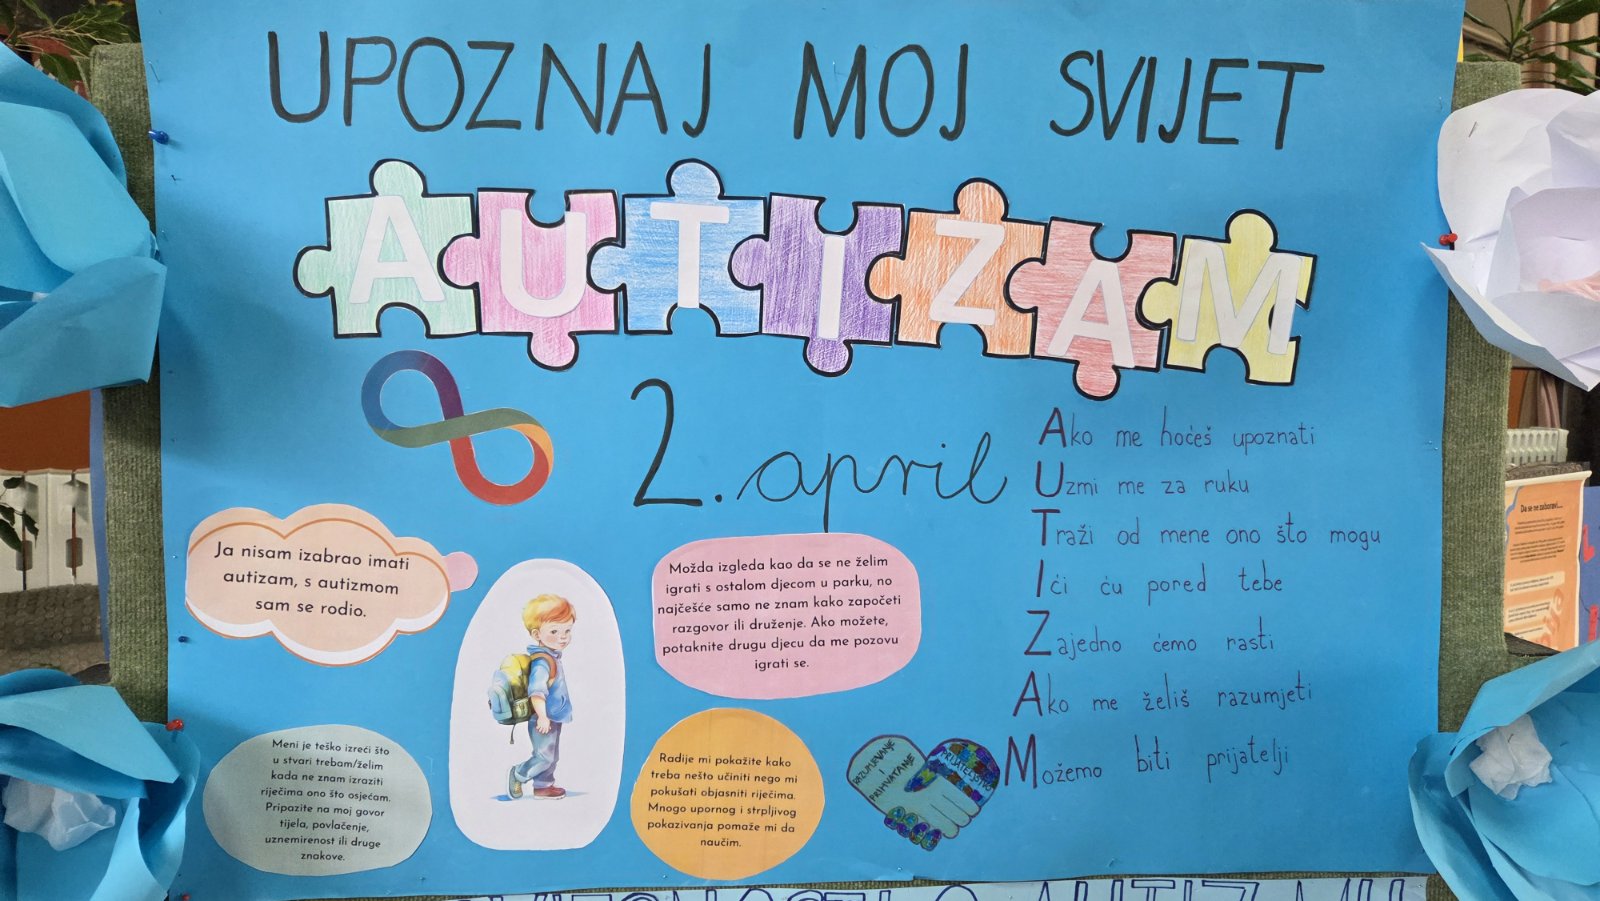 UPOZNAJ MOJ SVIJET
AUTIZAM
2. april
Ako me hoćeš upoznati
Uzmi me za ruku
Traži od mene ono što mogu
Ići ću pored tebe
Zajedno ćemo rasti
Ako me želiš razumjeti
Možemo biti prijatelji
Ja nisam izabrao imati
autizam, s autizmom
sam se rodio.
Možda izgleda kao da se ne želim
igrati s ostalom djecom u parku, no
najčešće samo ne znam kako započeti
razgovor ili druženje. Ako možete,
potaknite drugu djecu da me pozovu
igrati se.
Meni je teško izreći što
u stvari trebam/želim
kada ne znam izraziti
riječima ono što osjećam.
Pripazite na moj govor
tijela, povlačenje,
uznemirenost ili druge
znakove.
Radije mi pokažite kako
treba nešto učiniti nego mi
pokušati objasniti riječima.
Mnogo upornog i strpljivog
pokazivanja pomaže mi da
naučim.
RAZUMJEVANJE
I
PRIHVATANJE
PRIJATELJSTVO
Da se ne zaboravi...